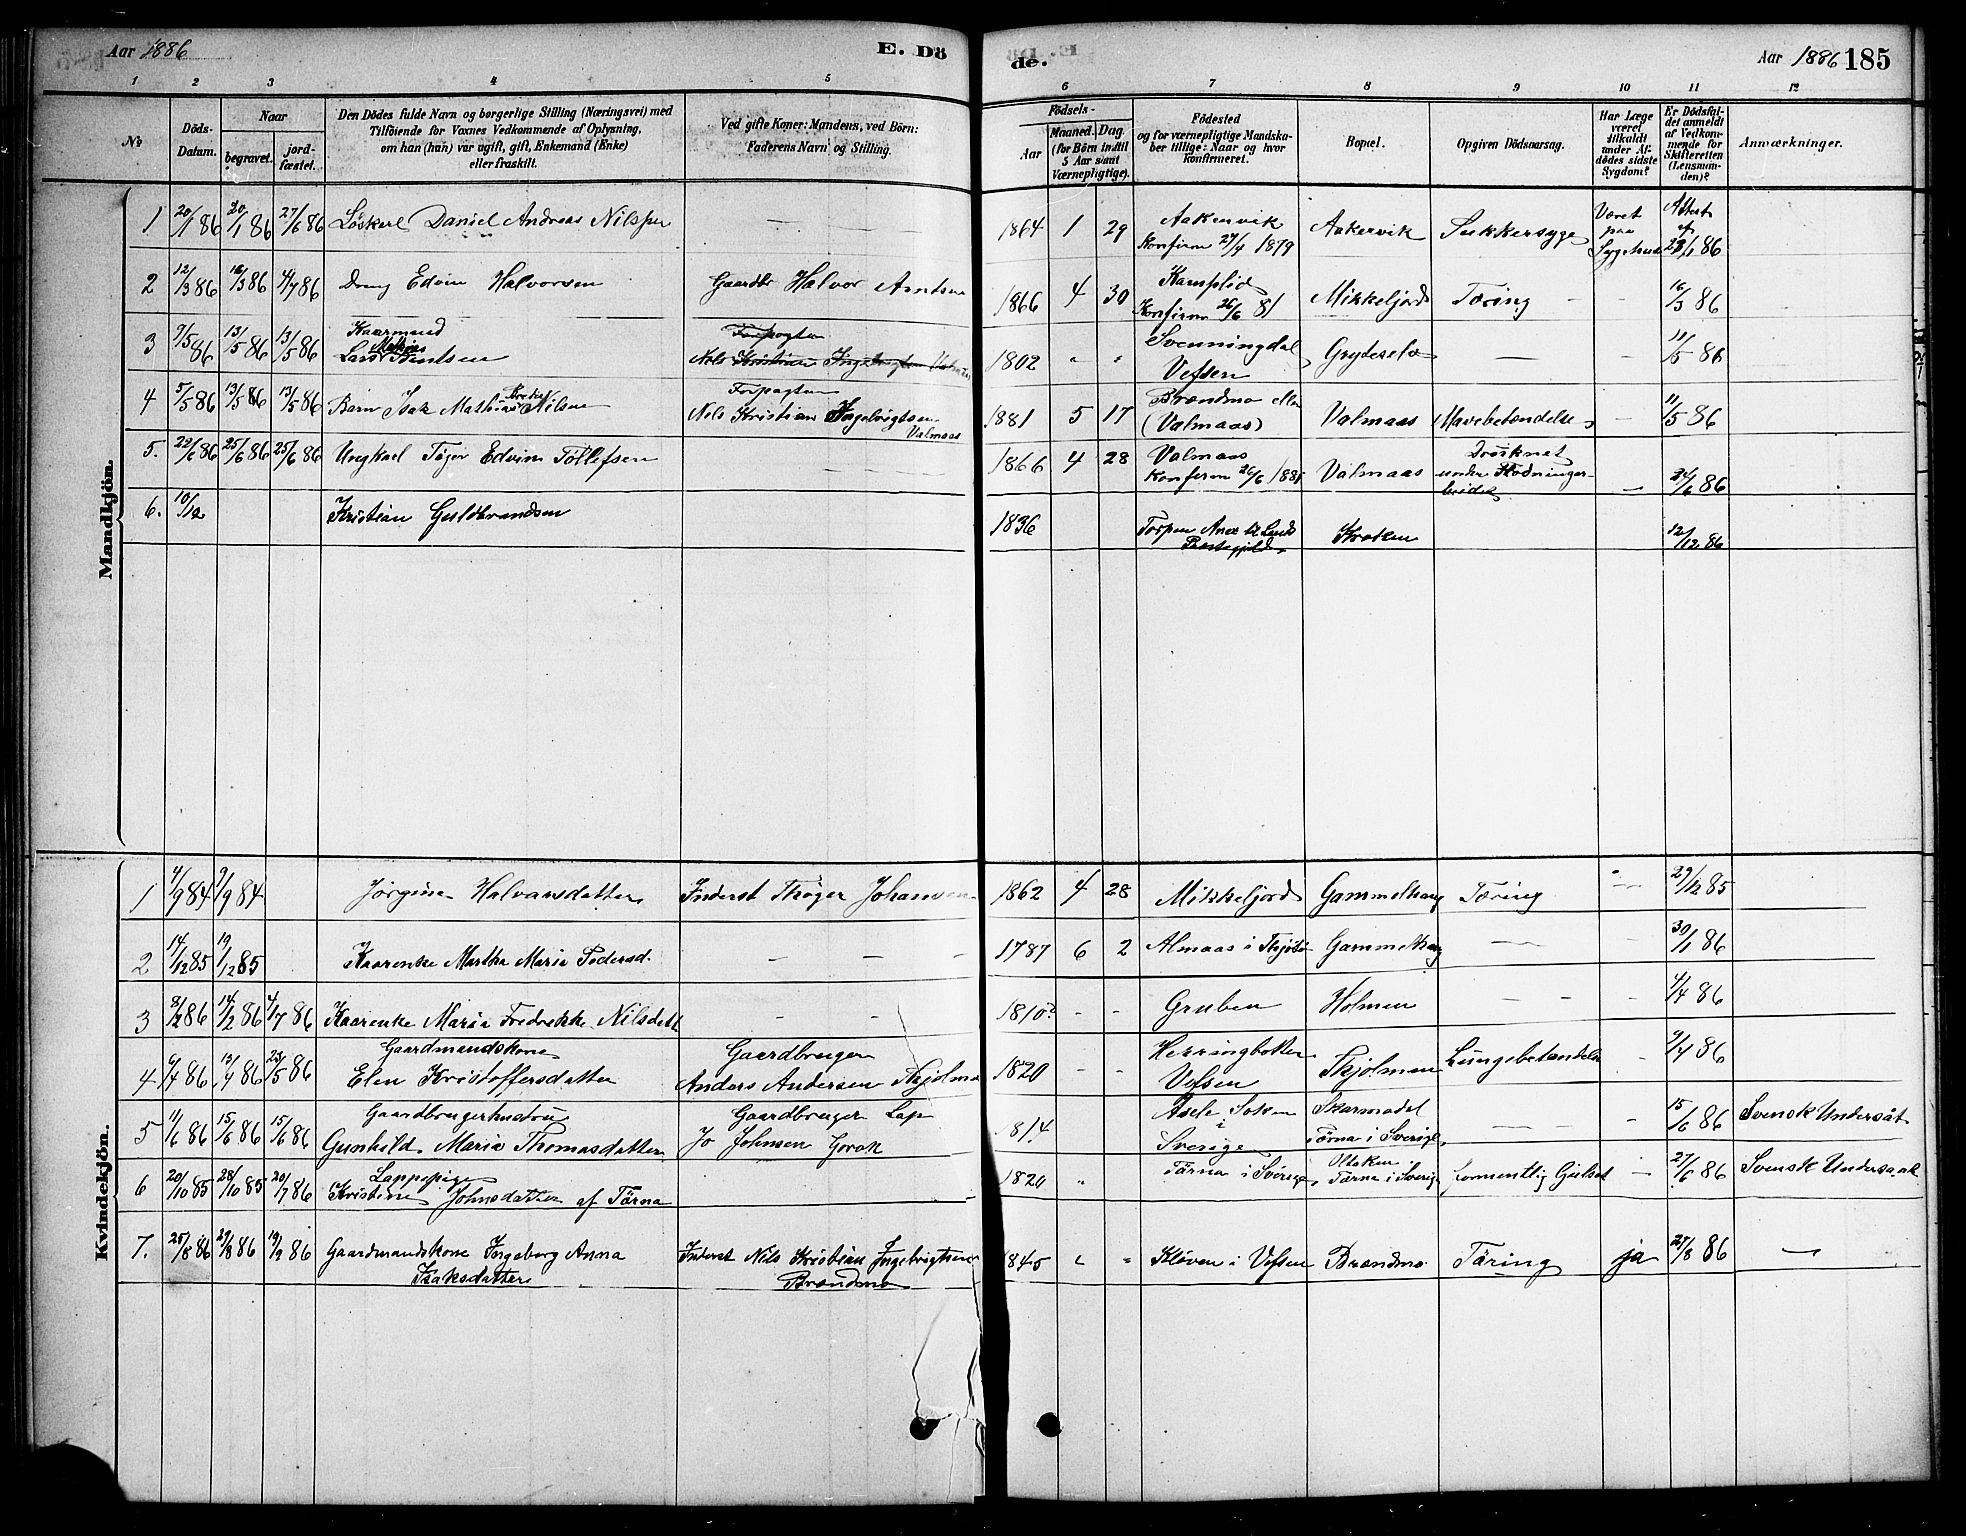 Aar 1886
E. Dö
de.
Aar 1886 185
1 2 3 4 5 6 7 8 9 10 11 12
№
Döds-
Datum.
Naar
begravet.
jord-
fæstet.
Den Dödes fulde Navn og borgerlige Stilling (Næringsvei) med
Tilföiende for Voxnes Vedkommende af Oplysning,
om han (hun) var ugift, gift, Enkemand (Enke)
eller fraskilt.
Ved gifte Koner: Mandens, ved Börn:
Faderens Navn og Stilling.
Födsels-
Aar
Maaned. Dag.
(for Börn indtil
5 Aar samt
Værnepligtige).
Födested
og for værnepligtige Mandska-
ber tillige: Naar og hvor
konfirmeret.
Bopæl.
Opgiven Dödsaarsag.
Har Læge
været
tilkaldt
under Af-
dödes sidste
Sygdom?
Er Dödsfal-
det anmeldt
af Vedkom-
mende for
Skifteretten
(Lensman-
den)?
Anmærkninger.
Mandkjön.
1 20/1 86 20/1 86 27/6 86 Löskarl Daniel Andreas Nilsen — 1864 1 29 Aakervik Konfirm 27/4 1879 Aakervik Sukkersyge Været paa Sygehuset Attest af 23/1 86
2 12/3 86 16/3 86 4/7 86 Dreng Edvin Halvorsen Gaardbr Halvor Arntsen 1866 4 30 Kamplid Konfirm 26/6 81 Mikkeljord Tæring - - 16/3 86
3 9/5 86 13/5 86 13/5 86 Kaarmand Lars Mathias Bentsen Forpagter Nils Kristian Ingebrigtsen Valmaas 1802 " " Svenningdal Vefsen Grytesela — — 11/5 86
4 5/5 86 13/5 86 13/5 86 Barn Isak Mathias Nilsen Forpagter Nils Kristian Ingebrigtsen Valmaas 1881 5 17 Brændmo eller (Valmaas) Valmaas Mavebetændelse - 11/5 86
5. 22/6 86 25/6 86 25/6 86 Ungkarl Töger Edvin Tollefsen 1866 4 28 Valmaas Konfirm 26/6 1881 Valmaas Drøiknet under Flødningsarbeidet — 24/6 86
6. 10/12 Kristian Guldbrandsen 1836 Torpen Anex til Lands Præstegjeld Kroken 12/12 86
Kvindekjön.
1 4/9 84 9/9 84 Jörgine Halvorsdatter Inderst Thöger Johansen 1862 4 28 Mikkeljord Gammelhaug Tæring — 29/12 85
2 14/12 85 19/12 85 Kaarenke Martha Maria Pedersd. - - - 1787 6 2 Almaas i Gammelhaug - - - 30/1 86
3 8/2 86 14/2 86 4/7 86 Kaarenke Maria Fredrekke Nilsdatt - - 1810? - - Gruben Holmen - - - 4/4 86
4 4/4 86 13/4 86 23/5 86 Gaardmandskone Elen Kristoffersdatter Gaardbruger Anders Andersen Thjolmen 1820 - - Herringbotten Vefsen Thjolmen Lungebetændelse - 9/4 86
5 11/6 86 15/6 86 15/6 86 Gaardbrugerhustru Gunhild Maria Thomasdatter Gaardbruger Lap Jo Johnsen 1814 Åsele Soken i Sverige Skarmodal Tärna i Sverige - - 15/6 86 Svensk Undersåt
6 20/10 85 28/10 85 20/7 86 Lappepige Kristine Johnsdatter af Tärna 1820 " Tärna i Sverige Tärna i Sverige formentlig Gulsot - 27/6 86 Svensk Undersaat
7. 25/8 86 29/8 86 19/9 86 Gaardmandskone Ingeborg Anna Isaksdatter Inderst Nils Kristian Ingebrigtsen Brændmo 1845 " " Kløven i Vefsen Brændmo Täring ja 27/8 86 —